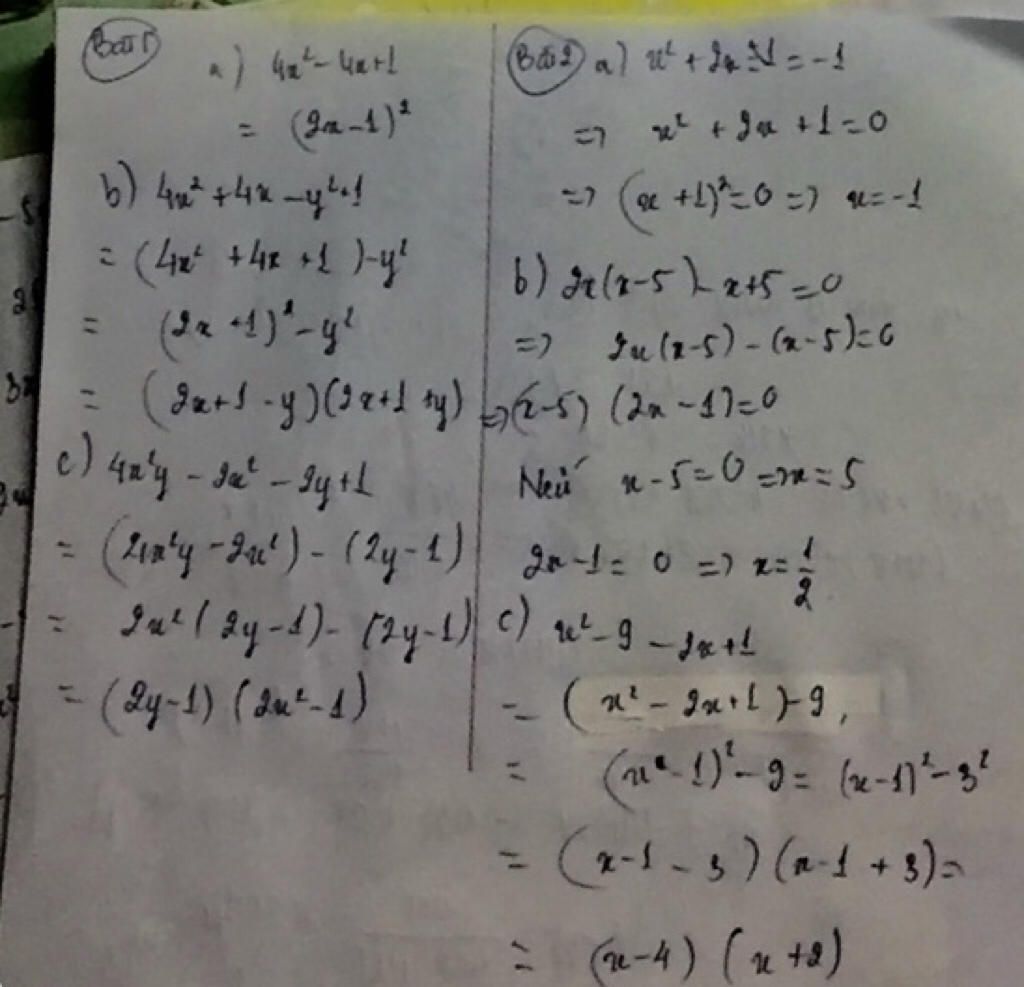 Bài 1
a) 4x² - 4x+1
= (2x-1)²
b) 4x² + 4x - y²+1
= (4x² + 4x + 1) - y²
= (2x +1)² - y²
= (2x+1 - y)(2x+1 +y)
c) 4x²y - 2x² - 2y+1
= (4x²y - 2x²) - (2y-1)
= 2x² (2y-1) - (2y-1)
= (2y-1) (2x²-1)
Bài 2
a) x² + 2x = -1
=> x² + 2x + 1 = 0
=> (x +1)² = 0 => x = -1
b) 2x(x-5) - x+5 = 0
=> 2x(x-5) - (x-5) = 0
=> (x-5) (2x - 1) = 0
Nếu x - 5 = 0 => x = 5
2x - 1 = 0 => x = 1/2
c) x² - 9 - 2x + 1
= (x² - 2x+1) - 9,
= (x - 1)² - 9 = (x-1)² - 3²
= (x-1 - 3) (x-1 + 3) =
= (x-4) (x+2)